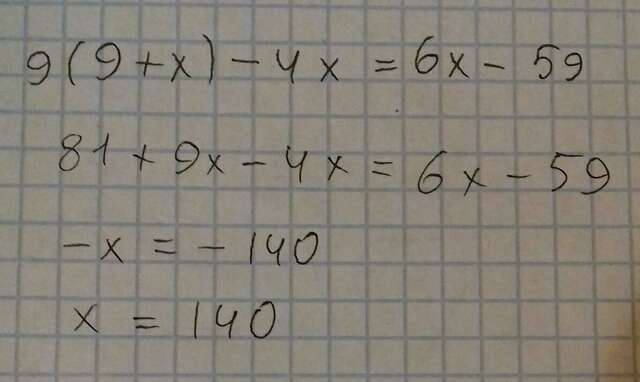 9(9+x)-4x=6x-59
81+9x-4x=6x-59
-x=-140
x=140